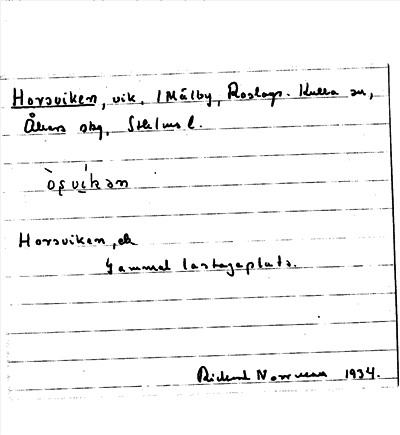 Horsviken, vik, 1 Målby, Roslags-Kulla sn,
Åkers sbg, Sthlms l.
òṣvíkən
Horsviken, ek
Gammal lastageplats.
Rickard 1934.